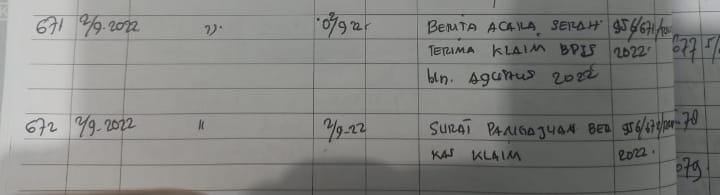 671 2/9-2022 ". 02/9 22 BERITA ACARA SERAH 956/671/
TERIMA KLAIM BPJS 2022.
bln. Agustus 2022
672 2/9-2022 " 2/9-22 SURAT PANGAJUAN BER 956/672/
KAS KLAIM 2022.
677
78
679.